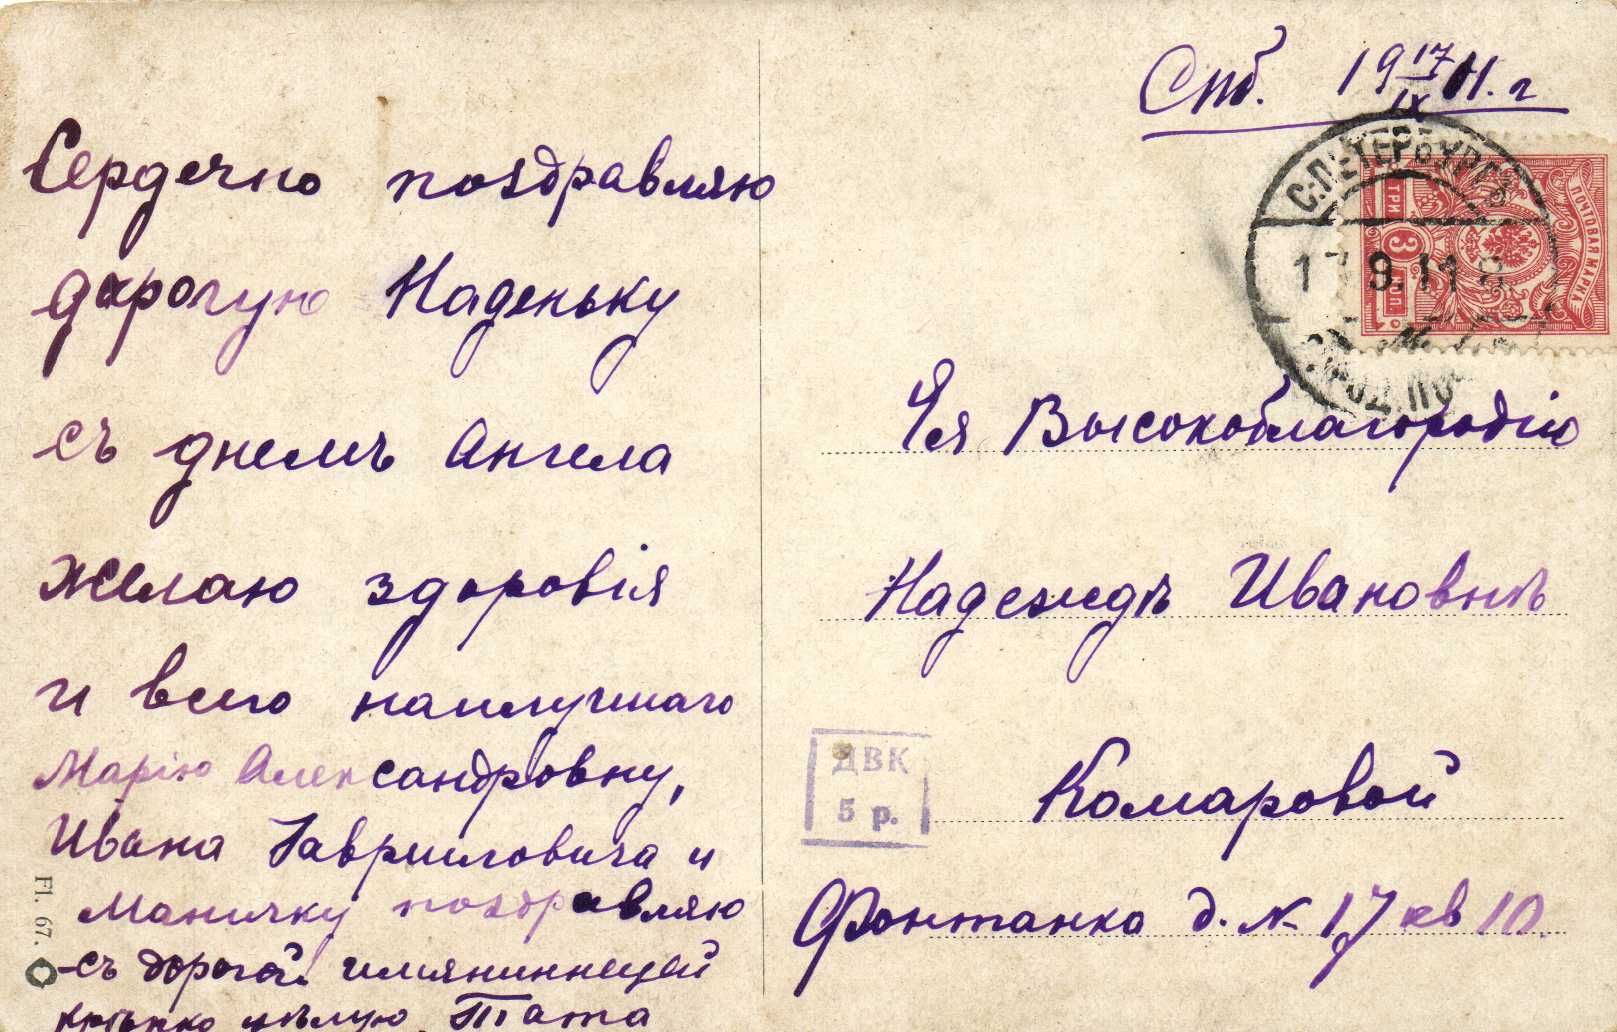 Спб. 19 17/IX 11. г
Сердечно поздравляю
дорогую Наденьку
съ днемъ Ангела
желаю здоровія
и всего наилучшаго
Марію Александровну,
Ивана Гавриловича и
Маничку поздравляю
съ дорогой имянинницей
крѣпко цѣлую. Тата
Fl. 67.
С.ПЕТЕРБУРГЪ
9.11
ПОЧТОВАЯ МАРКА
ТРИ 3 КОП.
Ея Высокоблагородію
Надеждѣ Ивановнѣ
Комаровой
Фонтанка д. № 17 кв 10.
ДВК
5 р.